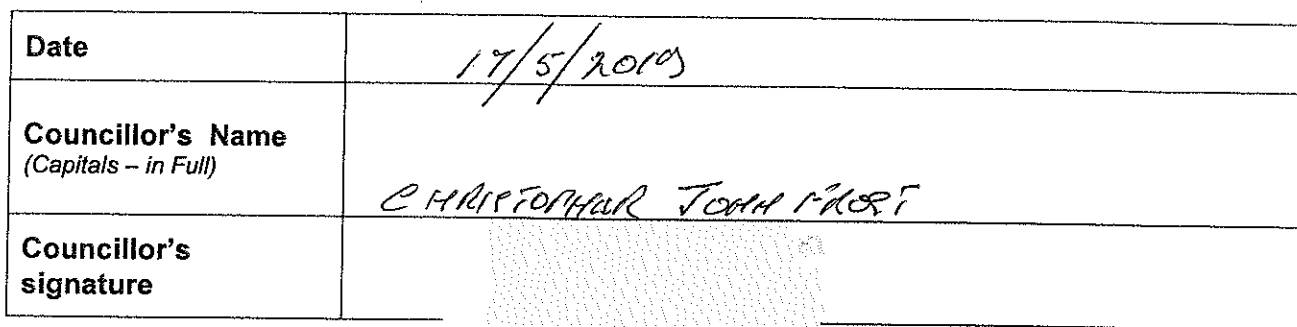 Date
17/5/2019
Councillor's Name
(Capitals – in Full)
CHRISTOPHER JOHN FROST
Councillor's
signature